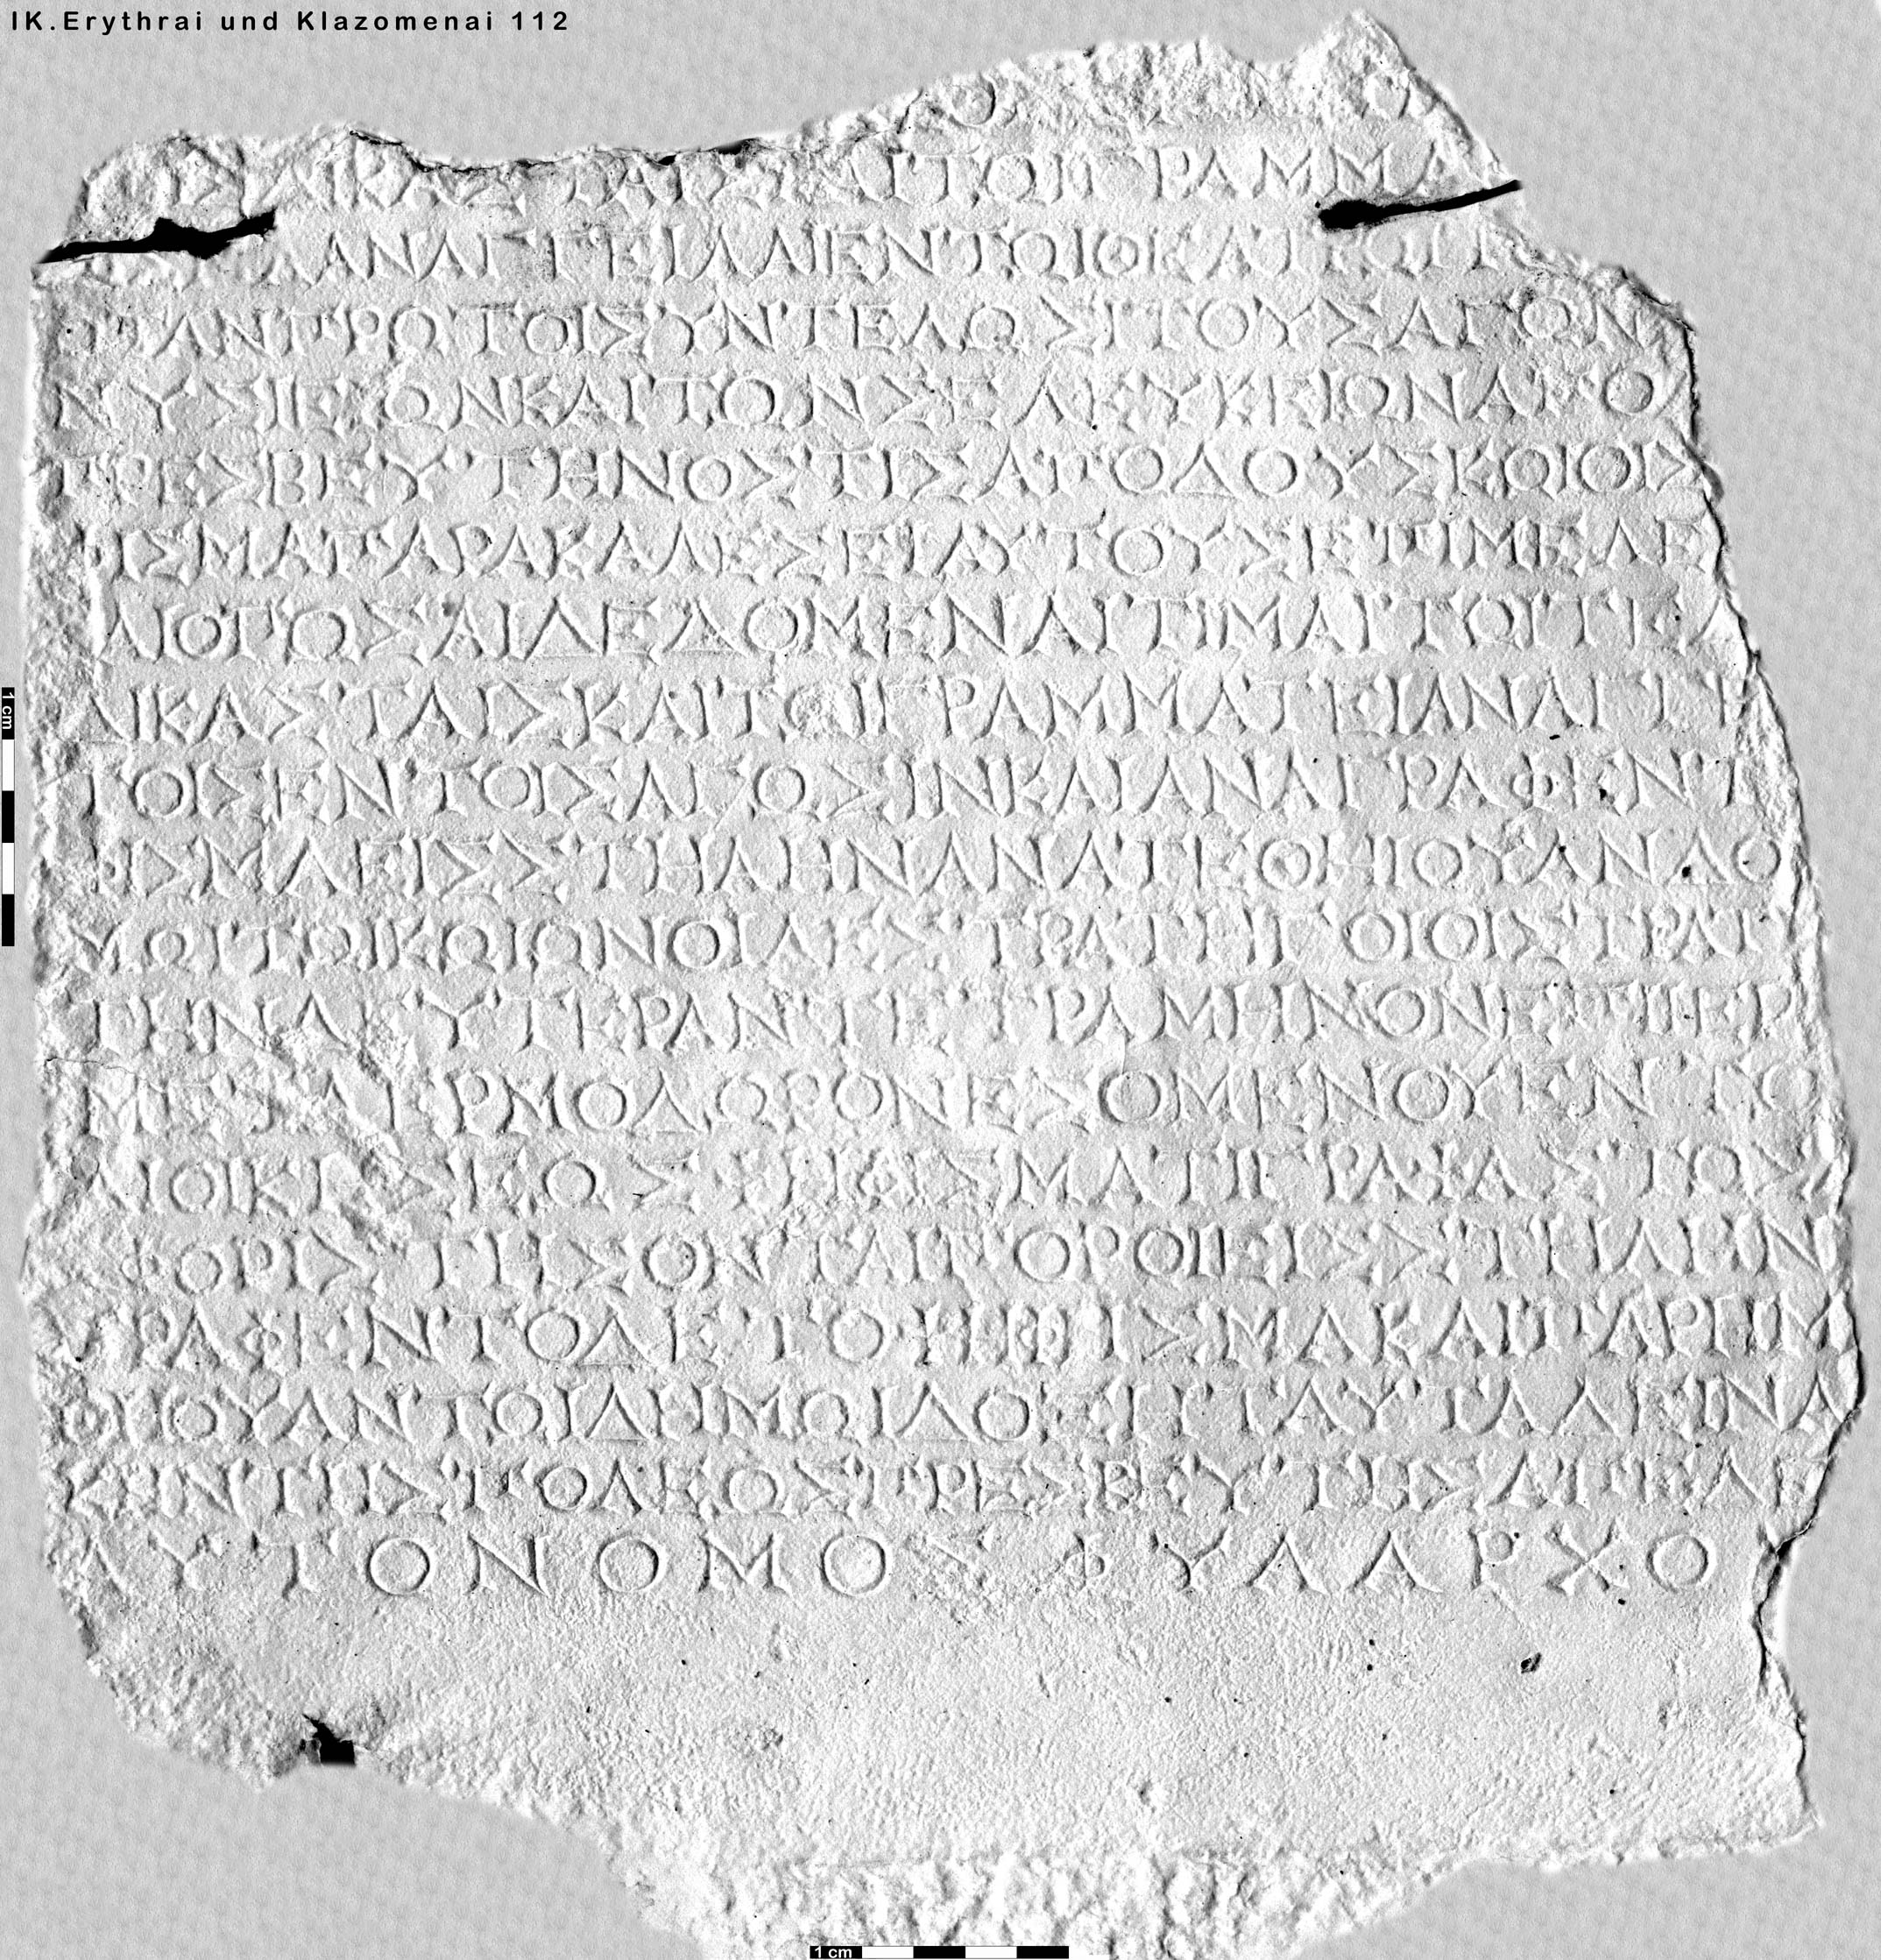 IK.Erythrai und Klazomenai 112
ΙΣΔΙΚΑΣΤΑΙΣΚΑΙΤΩΙΓΡΑΜΜΑ
ΑΝΑΓΓΕΙΛΑΙΕΝΤΩΙΘΕΑΤΡΩΙ
ΟΤΑΝΠΡΩΤΟΙΣΥΝΤΕΛΩΣΙΤΟΥΣΑΓΩΝ
ΝΥΣΙΕΩΝΚΑΙΤΩΝΣΕΛΕΥΚΕΙΩΝΑΠΟ
ΠΡΕΣΒΕΥΤΗΝΟΣΤΙΣΑΠΟΔΟΥΣΚΩΙΟΙΣ
ΦΙΣΜΑΠΑΡΑΚΑΛΕΣΕΙΑΥΤΟΥΣΕΠΙΜΕΛΕ
ΑΙΟΠΩΣΑΙΔΕΔΟΜΕΝΑΙΤΙΜΑΙΤΩΙΤΕΔ
ΔΙΚΑΣΤΑΙΣΚΑΙΤΩΙΓΡΑΜΜΑΤΕΙΑΝΑΓΓΕ
ΤΟΙΣΕΝΤΟΙΣΑΓΩΣΙΝΚΑΙΑΝΑΓΡΑΦΕΝΤ
ΦΙΣΜΑΕΙΣΣΤΗΛΗΝΑΝΑΤΕΘΗΙΟΥΑΝΔΟ
ΜΩΙΤΩΙΚΩΙΩΝΟΙΔΕΣΤΡΑΤΗΓΟΙΟΙΣΤΡΑΤ
ΤΗΝΔΕΥΤΕΡΑΝΤΕΤΡΑΜΗΝΟΝΕΠΙΙΕΡ
ΜΕΤΑΕΡΜΟΔΩΡΟΝΕΣΟΜΕΝΟΥΕΝΤΩ
ΔΙΟΙΚΗΣΕΩΣΨΗΦΙΣΜΑΤΙΓΡΑΨΑΣΤΩΝ
ΦΟΡΙΣΤΗΣΟΝΤΑΙΠΟΡΟΙΕΙΣΣΤΗΛΗΝ
ΓΡΑΦΕΝΤΟΔΕΤΟΨΗΦΙΣΜΑΚΑΙΠΑΡΗΜ
ΘΗΙΟΥΑΝΤΩΙΔΗΜΩΙΔΟΞΕΙΤΑΥΤΑΔΕΙΝΑ
ΚΕΝΤΗΣΠΟΛΕΩΣΠΡΕΣΒΕΥΤΗΣΑΠΕΔΕ
ΑΥΤΟΝΟΜΟΣ ΦΥΛΑΡΧΟ
1 cm
1 cm